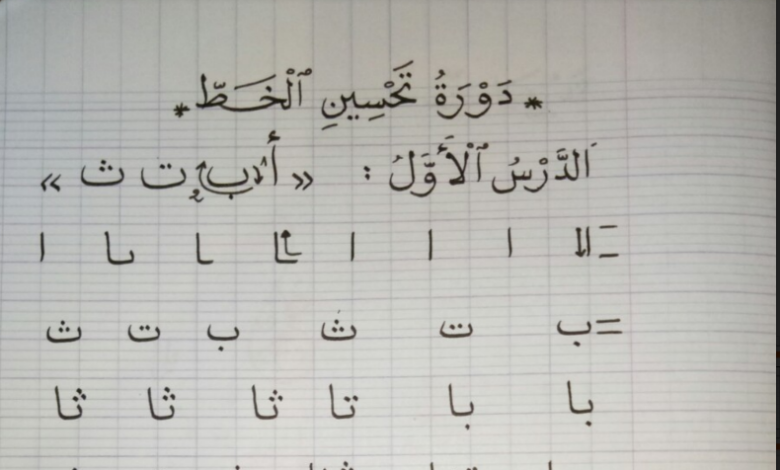 * دَوْرَةُ تَحْسِينِ ٱلْخَطِّ *
اَلدَّرْسُ ٱلْأَوَّلُ : « أ ب ت ث »
= ا ا ا ا ـا ـا ىا ا
= ب ت ث ب ت ث
با با تا ثا ثا ثا